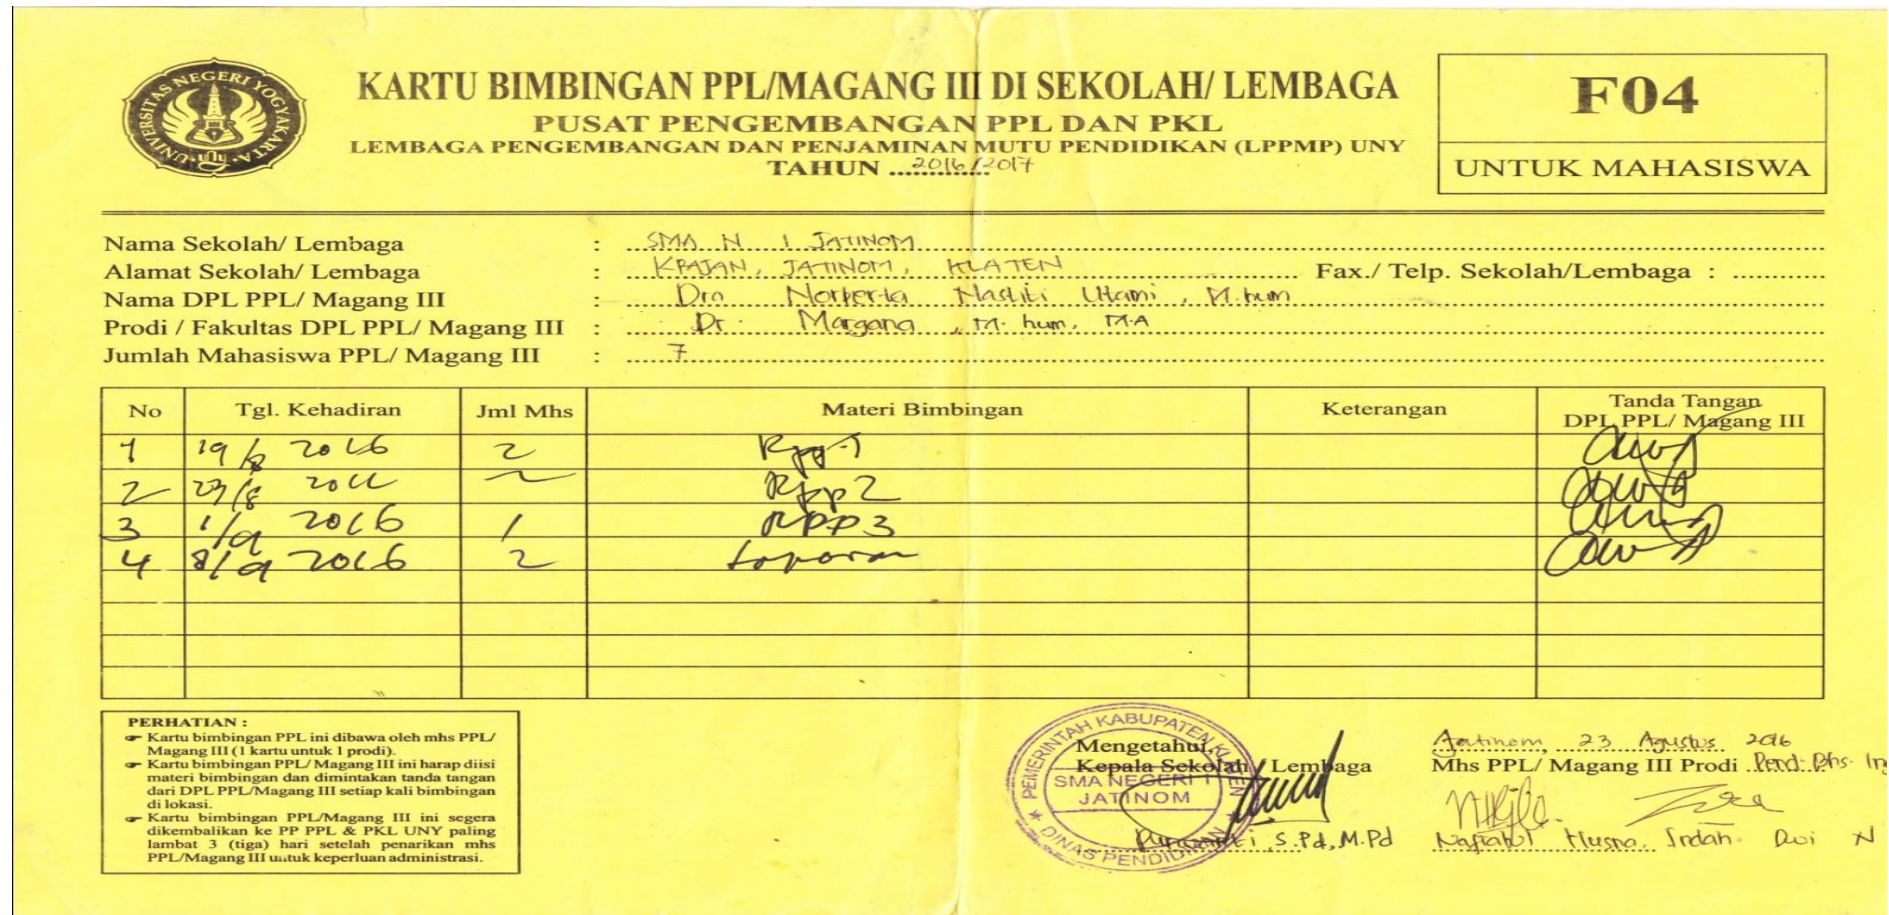 UNIVERSITAS NEGERI YOGYAKARTA
UNY
KARTU BIMBINGAN PPL/MAGANG III DI SEKOLAH/ LEMBAGA
PUSAT PENGEMBANGAN PPL DAN PKL
LEMBAGA PENGEMBANGAN DAN PENJAMINAN MUTU PENDIDIKAN (LPPMP) UNY
TAHUN 2016/2017
F04
UNTUK MAHASISWA
Nama Sekolah/ Lembaga : SMA N 1 JATINOM
Alamat Sekolah/ Lembaga : KRAJAN, JATINOM, KLATEN Fax./ Telp. Sekolah/Lembaga : ............
Nama DPL PPL/ Magang III : Dra Norberta Nastiti Utami, M.hum
Prodi / Fakultas DPL PPL/ Magang III : Dr. Margana, M. hum, M.A
Jumlah Mahasiswa PPL/ Magang III : 7
No Tgl. Kehadiran Jml Mhs Materi Bimbingan Keterangan Tanda Tangan DPL PPL/ Magang III
1 19/8 2016 2 Rpp 1
2 23/8 2016 2 Rpp 2
3 1/9 2016 1 RPP 3
4 8/9 2016 2 Laporan
PERHATIAN :
Kartu bimbingan PPL ini dibawa oleh mhs PPL/
Magang III (1 kartu untuk 1 prodi).
Kartu bimbingan PPL/ Magang III ini harap diisi
materi bimbingan dan dimintakan tanda tangan
dari DPL PPL/Magang III setiap kali bimbingan
di lokasi.
Kartu bimbingan PPL/Magang III ini segera
dikembalikan ke PP PPL & PKL UNY paling
lambat 3 (tiga) hari setelah penarikan mhs
PPL/Magang III untuk keperluan administrasi.
PEMERINTAH KABUPATEN KLATEN
SMA NEGERI 1
JATINOM
DINAS PENDIDIKAN
Mengetahui,
Kepala Sekolah / Lembaga
S.Pd, M.Pd
Jatinom, 23 Agustus 2016
Mhs PPL/ Magang III Prodi Pend. Bhs. Ing
Nafiatul Husna Indah Dwi N